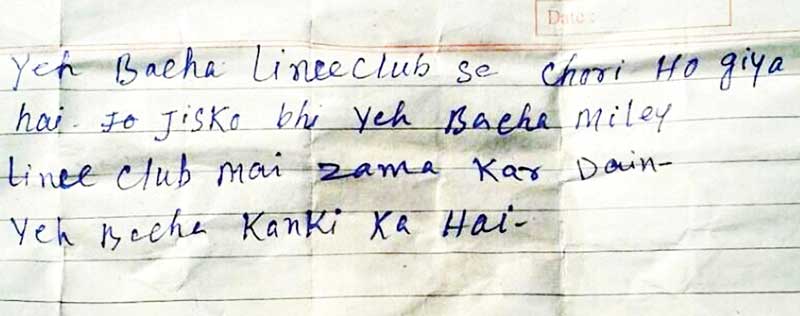 Date:
Yeh Bacha Lineeclub se Chori Ho giya
hai. Jo Jisko bhi Yeh Bacha Miley
Linee club mai zama Kar Dain-
Yeh Bacha Kanki Ka Hai-